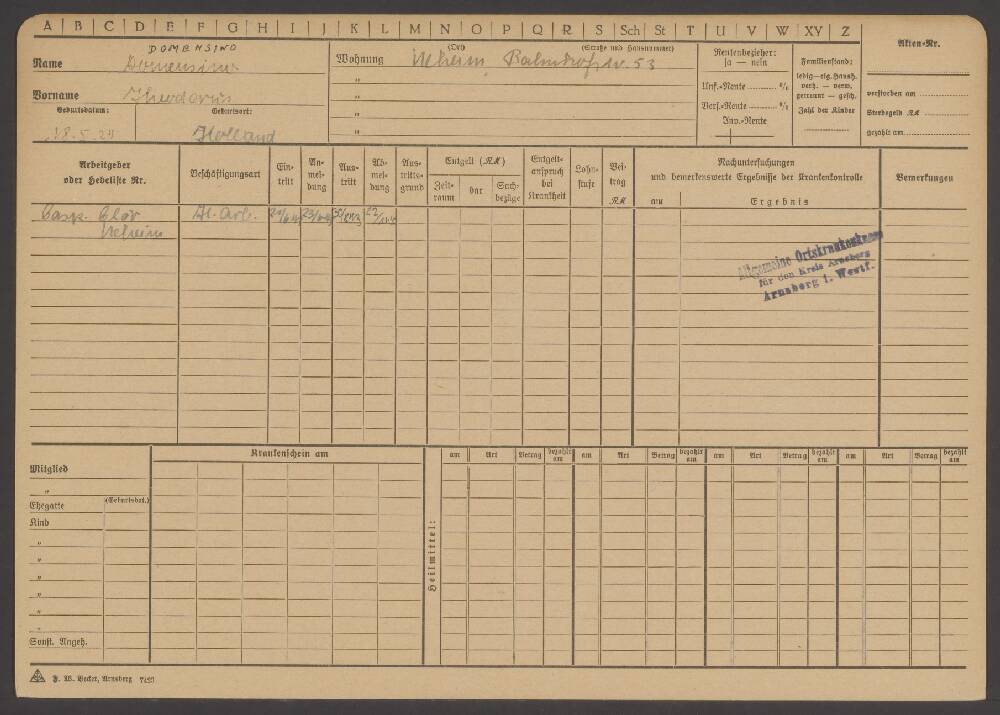 A B C D E F G H I J K L M N O P Q R S Sch St T U V W XY Z
DOMENSINO
Name Domensino
Vorname Theodorus
Geburtsdatum: Geburtsort:
Holland
(Ort) (Straße und Hausnummer)
Wohnung Neheim, 53
"
"
"
Rentenbezieher:
ja — nein
Unf.-Rente ........ %
Vers.-Rente ........ %
Inv.-Rente
Familienstand:
ledig—eig. Haush.
verh. — verw.
getrennt — gesch.
Zahl der Kinder
Akten-Nr.
verstorben am
Sterbegeld RM
gezahlt am
Arbeitgeber
oder Hebeliste Nr.
Beschäftigungsart
Ein-
tritt
An-
mel-
dung
Aus-
tritt
Ab-
mel-
dung
Aus-
tritts-
grund
Entgelt (RM)
Zeit-
raum
bar
Sach-
bezüge
Entgelt-
anspruch
bei
Krankheit
Lohn-
stufe
Bei-
trag
RM
Nachuntersuchungen
und bemerkenswerte Ergebnisse der Krankenkontrolle
am Ergebnis
Bemerkungen
Neheim
Allgemeine Ortskrankenkasse
für den Kreis Arnsberg
Arnsberg i. Westf.
Krankenschein am
Mitglied
"
Ehegatte (Geburtsdat.)
Kind
"
"
"
"
"
Sonst. Angeh.
Heilmittel:
am Art Betrag bezahlt am am Art Betrag bezahlt am am Art Betrag bezahlt am am Art Betrag bezahlt am
F. W. Becker, Arnsberg 7423